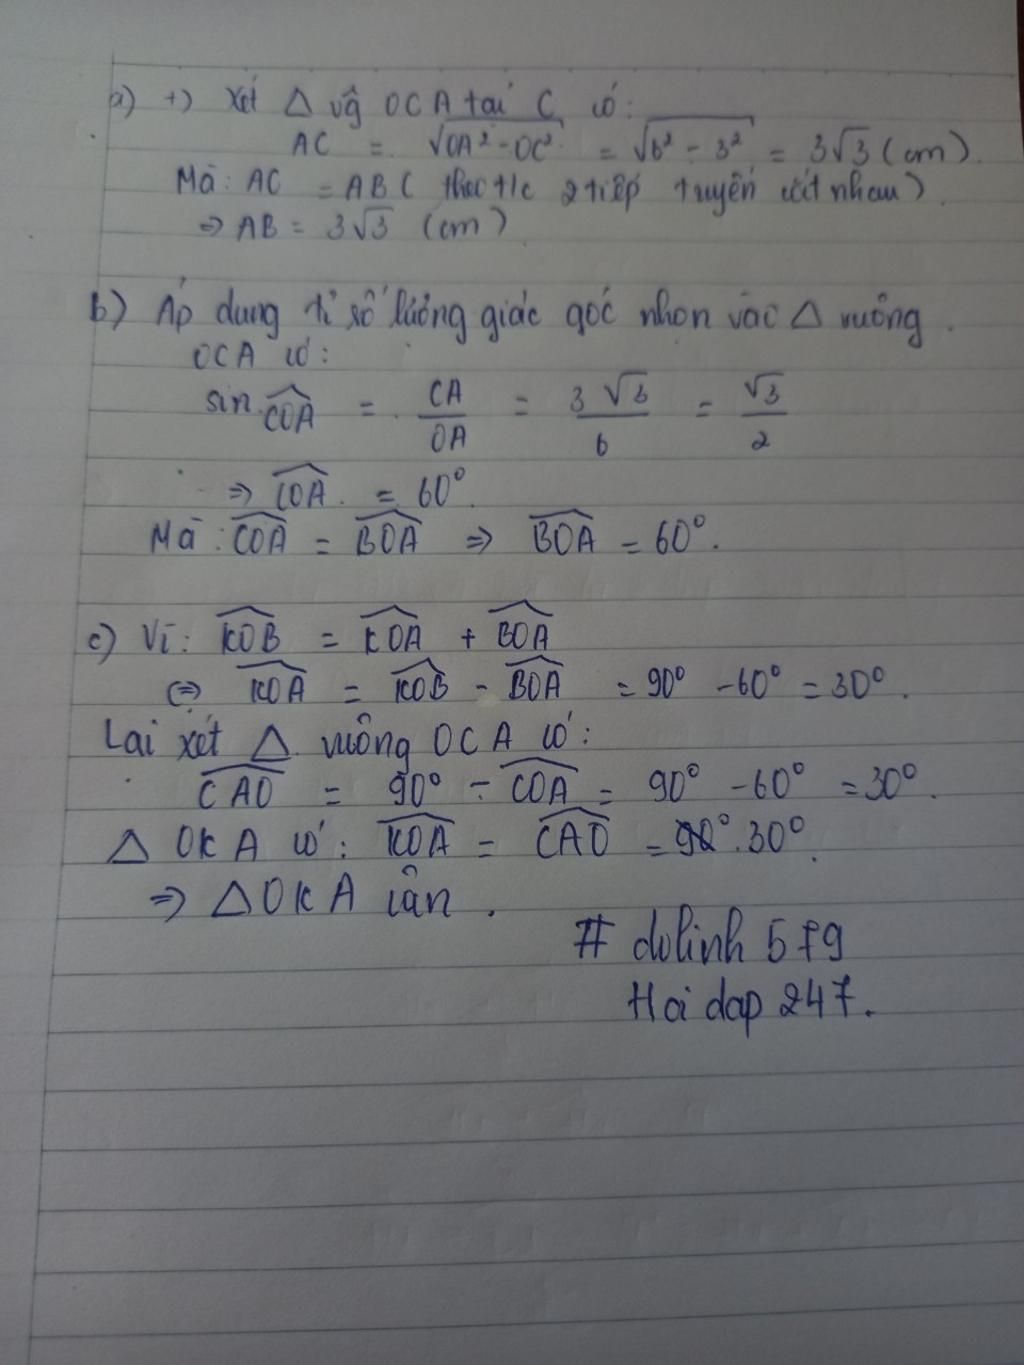 a) +) Xét Δ vg OCA tại C có:
AC = √OA² - OC² = √6² - 3² = 3√3 (cm).
Mà: AC = AB ( theo t/c 2 tiếp tuyến cắt nhau)
=> AB = 3√3 (cm)
b) Áp dụng tỉ số lượng giác góc nhọn vào Δ vuông.
OCA có:
sin COA = CA/OA = 3√3/6 = √3/2
=> COA = 60°
Mà: COA = BOA => BOA = 60°.
c) Vì: KOB = KOA + BOA
(=> KOA = KOB - BOA = 90° - 60° = 30°.
Lại xét Δ vuông OCA có:
CAO = 90° - COA = 90° - 60° = 30°.
Δ OKA có: KOA = CAO = 30°.
=> Δ OKA cân.
# dolinh 579
Hoi dap 247.